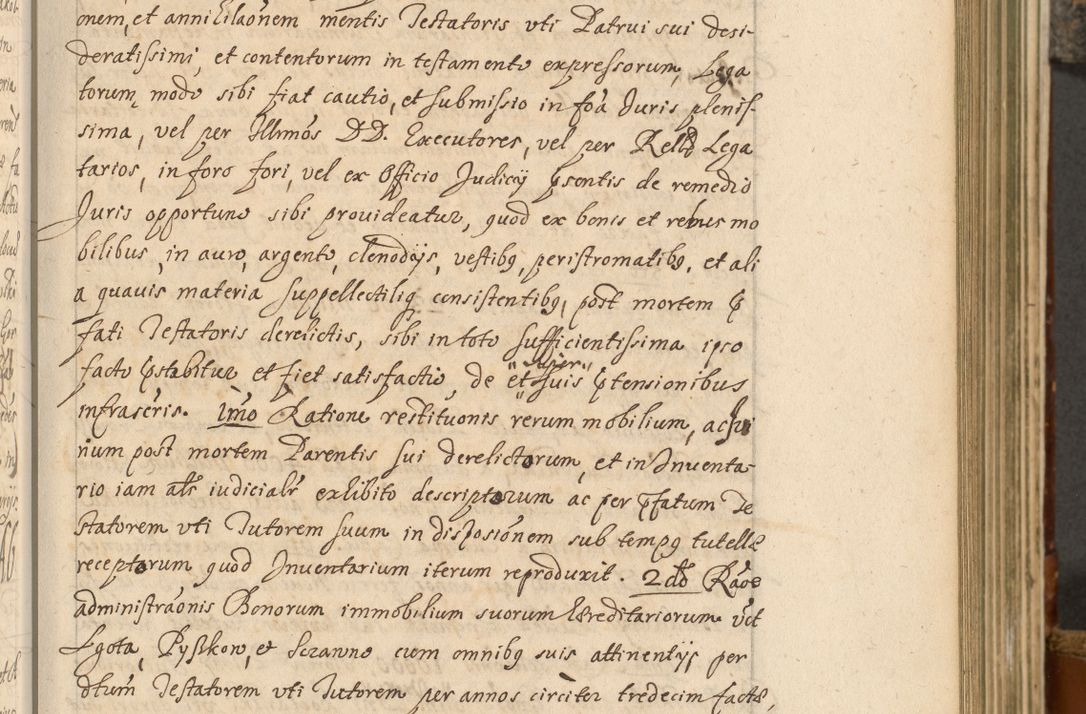 onem, et annihilaõnem mentis Testatoris vti Patrui sui desi-
deratissimi, et contentorum in testamento expressorum, Lega
torum, modo sibi fiat cautio, et submissio in foã Juris plenis-
sima, vel per Illmõs D.D. Executores, vel per Relłđ Lega
tarios, in foro fori, vel ex Officio Judicij pñsentis de remedio
Juris opportuno sibi prouideatur, quod ex bonis et rebus mo
bilibus, in auro, argento, clenodijs, vestibq, peristromatibq, et ali
a quauis materia suppellectiliq consistentibq, post mortem p̃
fati Testatoris derelictis, sibi in toto sufficientissima ipso
facto p̃stabitur et fiet satisfactio, de et super suis p̃tensionibus
infrascris. Imo Ratione restituonis rerum mobilium, ac
rium post mortem Parentis sui derelictorum, et in Inventa-
rio iam als iudicialr exhibito descriptorum ac per p̃fatum Te
statorem vti Tutorem suum in disposiõnem sub tempq tutellæ
receptorum quod Inventarium iterum reproduxit. 2do Raõe
administraõnis Bonorum immobilium suorum hæreditariorum vẽt
Lgota, Pyszkow, et Sczawno cum omnibq suis attinentijs per
dtum Testatorem vti Tutorem per annos circiter tredecim factæ,